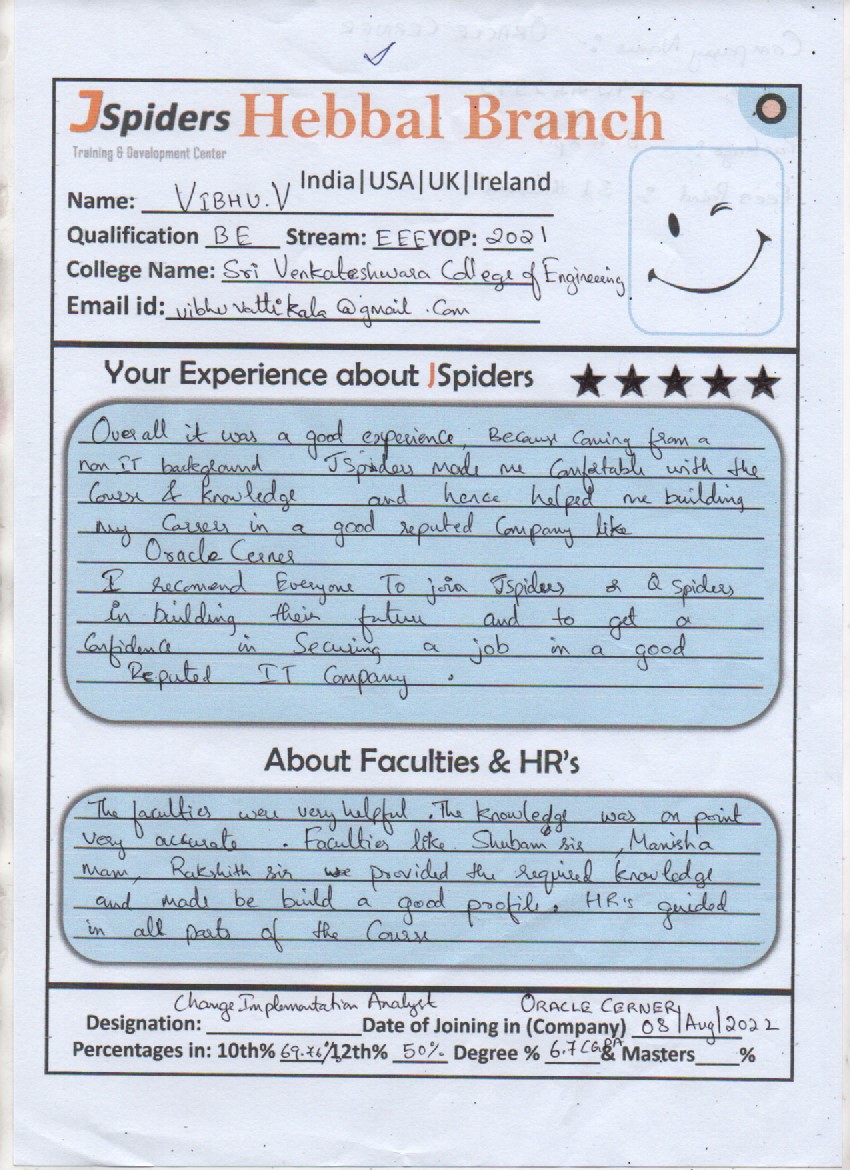 JSpiders Hebbal Branch
Training & Development Center
India|USA|UK|Ireland
Name: VIBHU.V
Qualification BE Stream: EEE YOP: 2021
College Name: Sri Venkateshwara College of Engineering
Email id: vibhuvattikala@gmail.com
Your Experience about JSpiders
Overall it was a good experience, Because coming from a
non IT background JSpiders made me Comfortable with the
Course & knowledge and hence helped me building
my Career in a good reputed Company like
Oracle Cerner
I recomend Everyone To join JSpiders & Q spiders
in building their future and to get a
Confidence in Securing a job in a good
Reputed IT Company .
About Faculties & HR's
The faculties were very helpful . The knowledge was on point
very accurate . Faculties like Shubam sir , Manisha
mam, Rakshith sir provided the required knowledge
and made be build a good profile. HR's guided
in all parts of the Course
Change Implementation Analyst ORACLE CERNER
Designation: Date of Joining in (Company) 08/Aug/2022
Percentages in: 10th% 12th% 50% Degree % 6.7 CGPA & Masters %